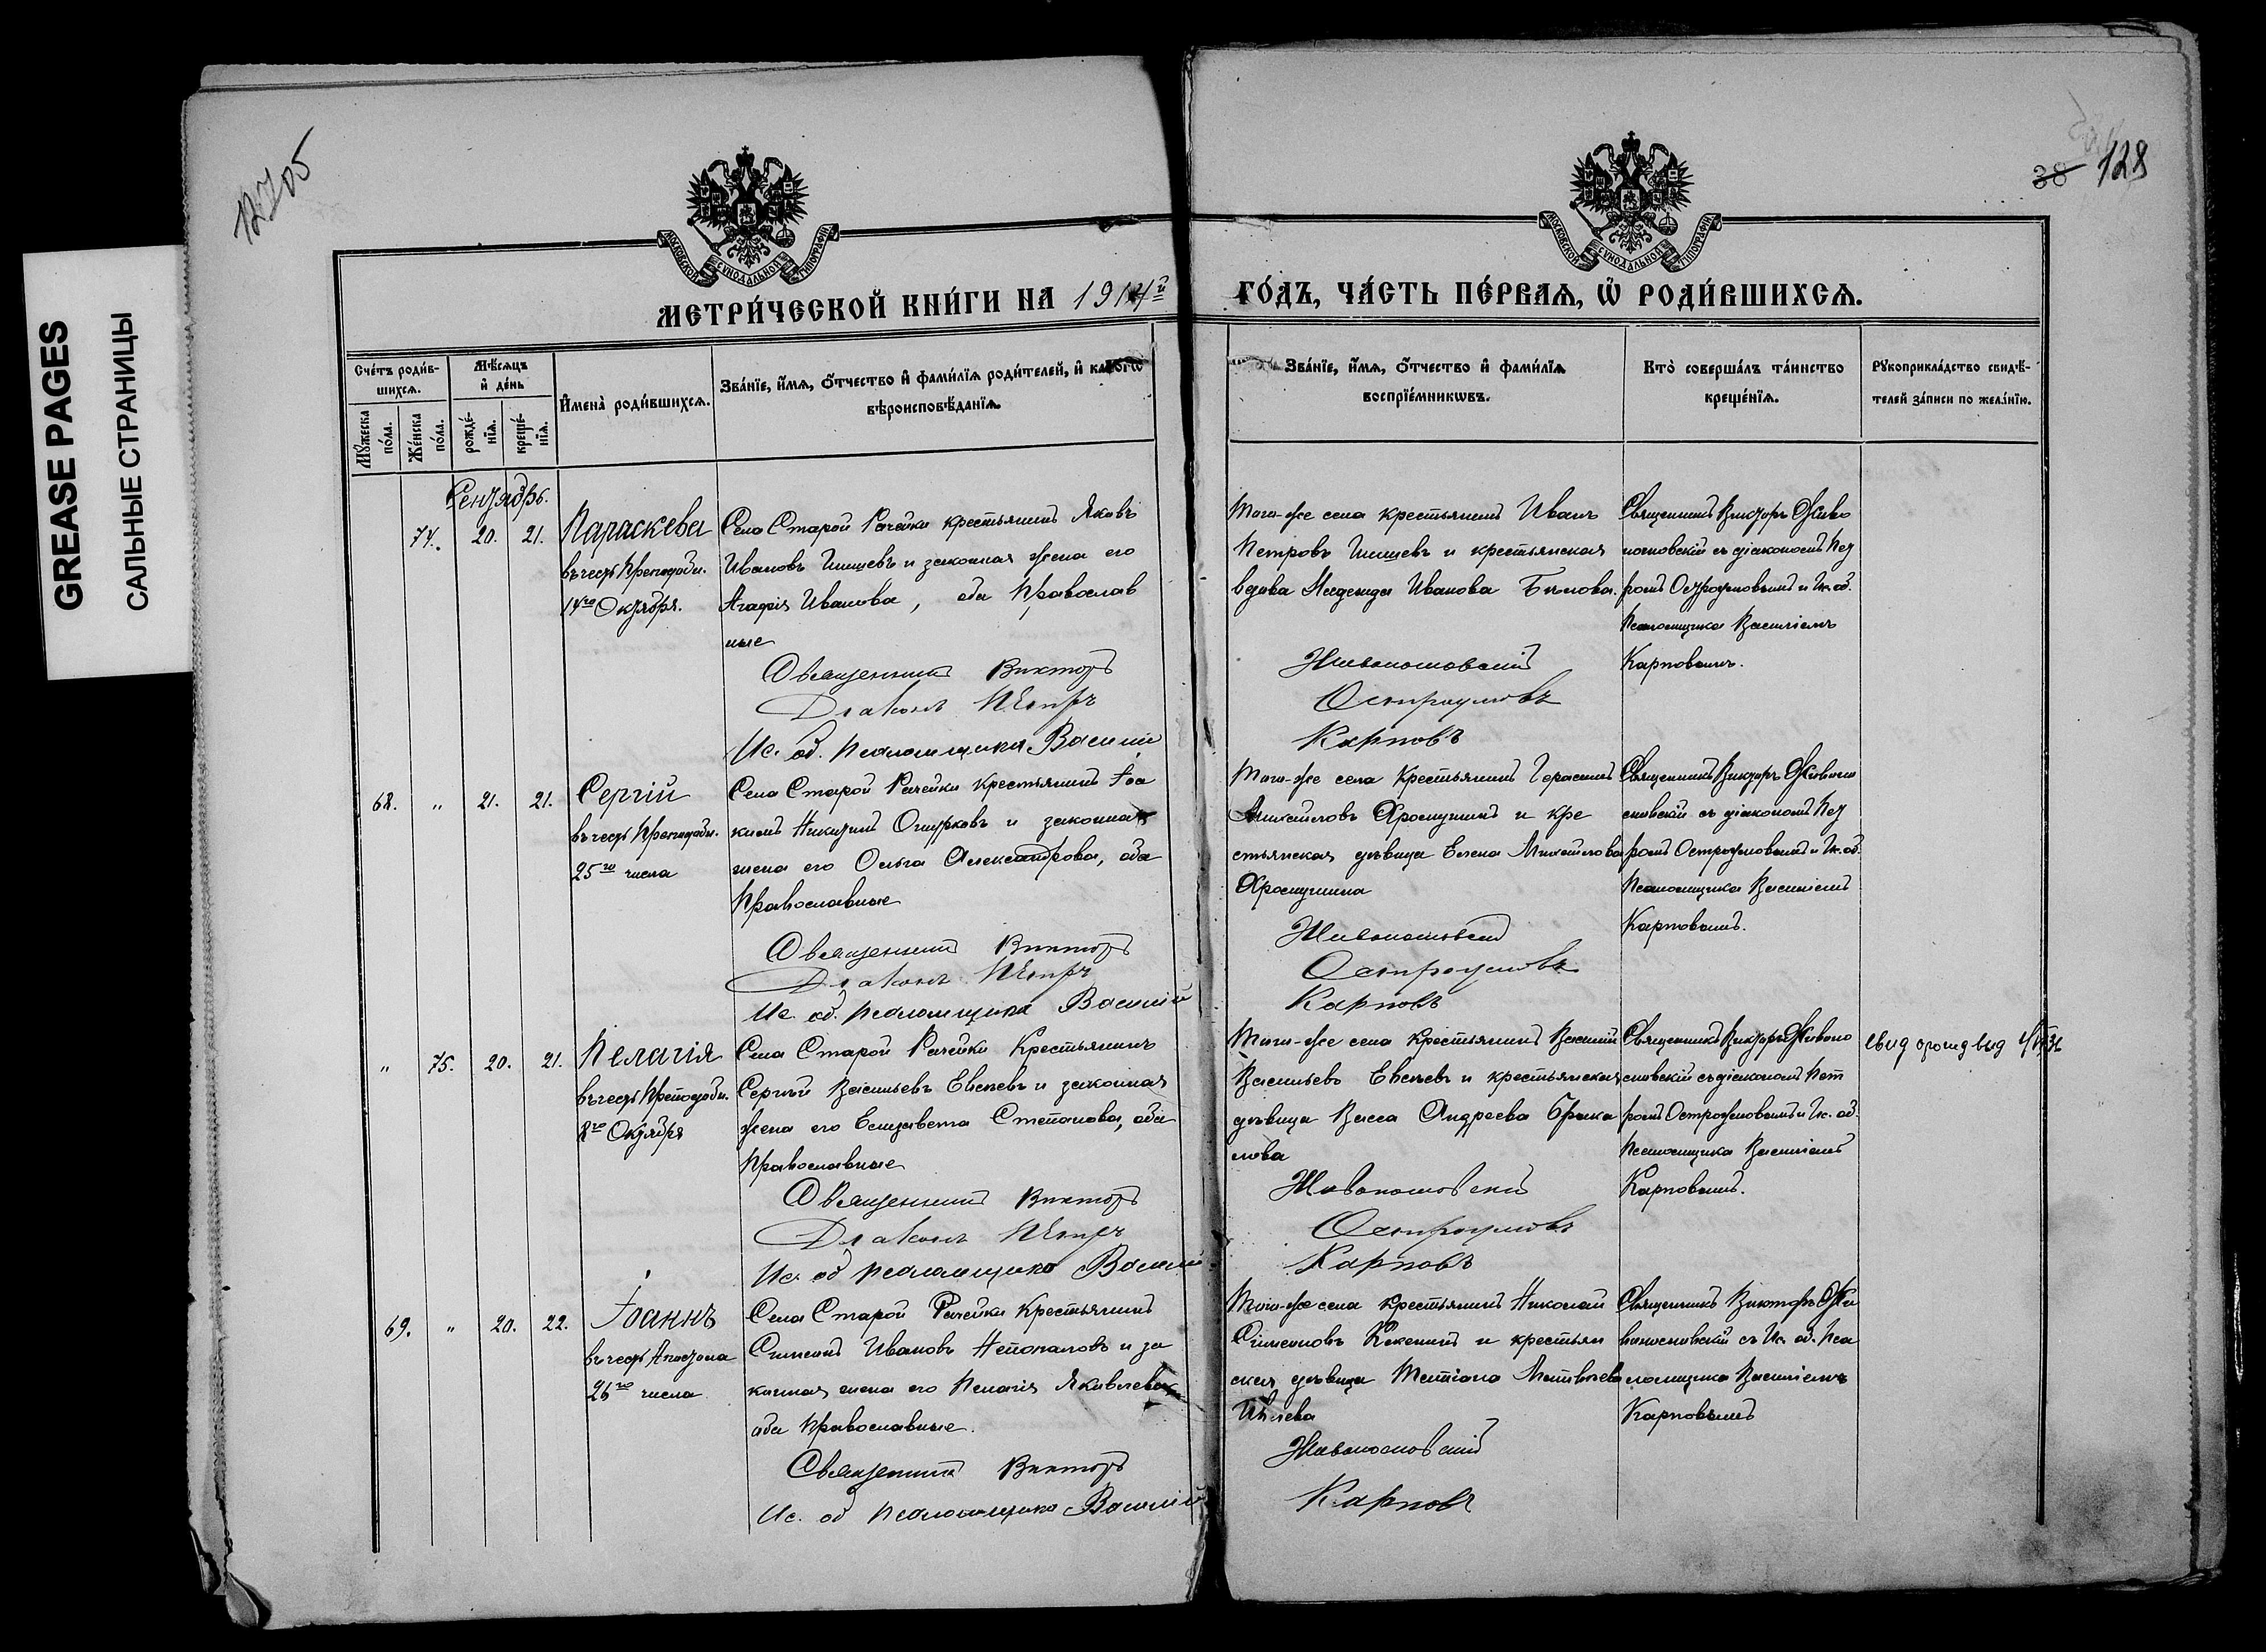 12705
GREASE PAGES
САЛЬНЫЕ СТРАНИЦЫ
38 128
МОСКОВСКОЙ СѴНОДАЛЬНОЙ ТИПОГРАФІИ
МОСКОВСКОЙ СѴНОДАЛЬНОЙ ТИПОГРАФІИ
МЕТРИ́ЧЕСКОЙ КНИ́ГИ НА 1914й ГО́ДЪ, ЧА́СТЬ ПЕ́РВАѦ, Ѡ҆ РОДИ́ВШИХСѦ.
Сче́тъ роди́вшихсѧ.
Мꙋ́жеска по́ла.
Же́нска по́ла.
Мѣ́сѧцъ и҆ де́нь
рожде́нїѧ.
креще́нїѧ.
И҆мена̀ роди́вшихсѧ.
Зва́нїе, и҆́мѧ, ѻ҆́тчество и҆ фами́лїѧ роди́телей, и҆ како́гѡ
вѣроисповѣ́данїѧ.
Зва́нїе, и҆́мѧ, ѻ҆́тчество и҆ фами́лїѧ
воспрїе́мникѡвъ.
Кто̀ соверша́лъ та́инство
креще́нїѧ.
Рꙋкоприкла́дство свидѣ́-
телей за́писи по жела́нїю.
Сентябрь.
74. 20. 21.
Параскева
въ честь Преподобн.
14го Октября.
Села Старой Рачейки крестьянинъ Яковъ
Ивановъ и законная жена его
Агафія Иванова, оба Православ
ные
Священникъ Викторъ
Діаконъ Петръ
Ис. об. псаломщика Василій
Того-же села крестьянинъ Иванъ
Петровъ и крестьянская
вдова Надежда Иванова Бѣлова.
Живоносновскій
Остроумовъ
Карповъ
Священникъ Викторъ Живо
носновскій съ діакономъ Пет
ромъ Остроумовымъ и Ис. об.
Псаломщика Василіемъ
Карповымъ.
68. " 21. 21.
Сергій
въ честь Преподобн.
25го числа
Села Старой Рачейки крестьянинъ Іоа
кимъ Никитинъ Ошурковъ и законная
жена его Ольга Александрова, оба
Православные
Священникъ Викторъ
Діаконъ Петръ
Ис. об. псаломщика Василій
Того-же села крестьянинъ Герасимъ
Михайловъ Хромушинъ и кре
стьянская дѣвица Елена Михайлова
Хромушина
Живоносновскій
Остроумовъ
Карповъ
Священникъ Викторъ Живоно
сновскій съ діакономъ Пет
ромъ Остроумовымъ и Ис. об.
Псаломщика Василіемъ
Карповымъ.
" 75. 20. 21.
Пелагія
въ честь Преподобн.
8го Октября
Села Старой Рачейки Крестьянинъ
Сергѣй Васильевъ Евсѣевъ и законная
жена его Елизавета Степанова, оба
Православные
Священникъ Викторъ
Діаконъ Петръ
Ис. об псаломщика Василій
Того-же села крестьянинъ Василій
Васильевъ Евсѣевъ и крестьянская
дѣвица Васса Андреева
лова
Живоносновскій
Остроумовъ
Карповъ
Священникъ Викторъ Живоно
сновскій съ діакономъ Пет
ромъ Остроумовымъ и Ис. об.
Псаломщика Василіемъ
Карповымъ.
69. " 20. 22.
Іоаннъ
въ честь Апостола
26го числа
Села Старой Рачейки Крестьянинъ
Симеонъ Ивановъ и за
конная жена его Пелагія Яковлева
оба Православные.
Священникъ Викторъ
Ис. об псаломщика Василій
Того-же села крестьянинъ Николай
Симеоновъ и крестьян
ская дѣвица Татіана Матвѣева
Живоносновскій
Карповъ
Священникъ Викторъ Жи
воносновскій съ Ис. об. Пса
ломщика Василіемъ
Карповымъ